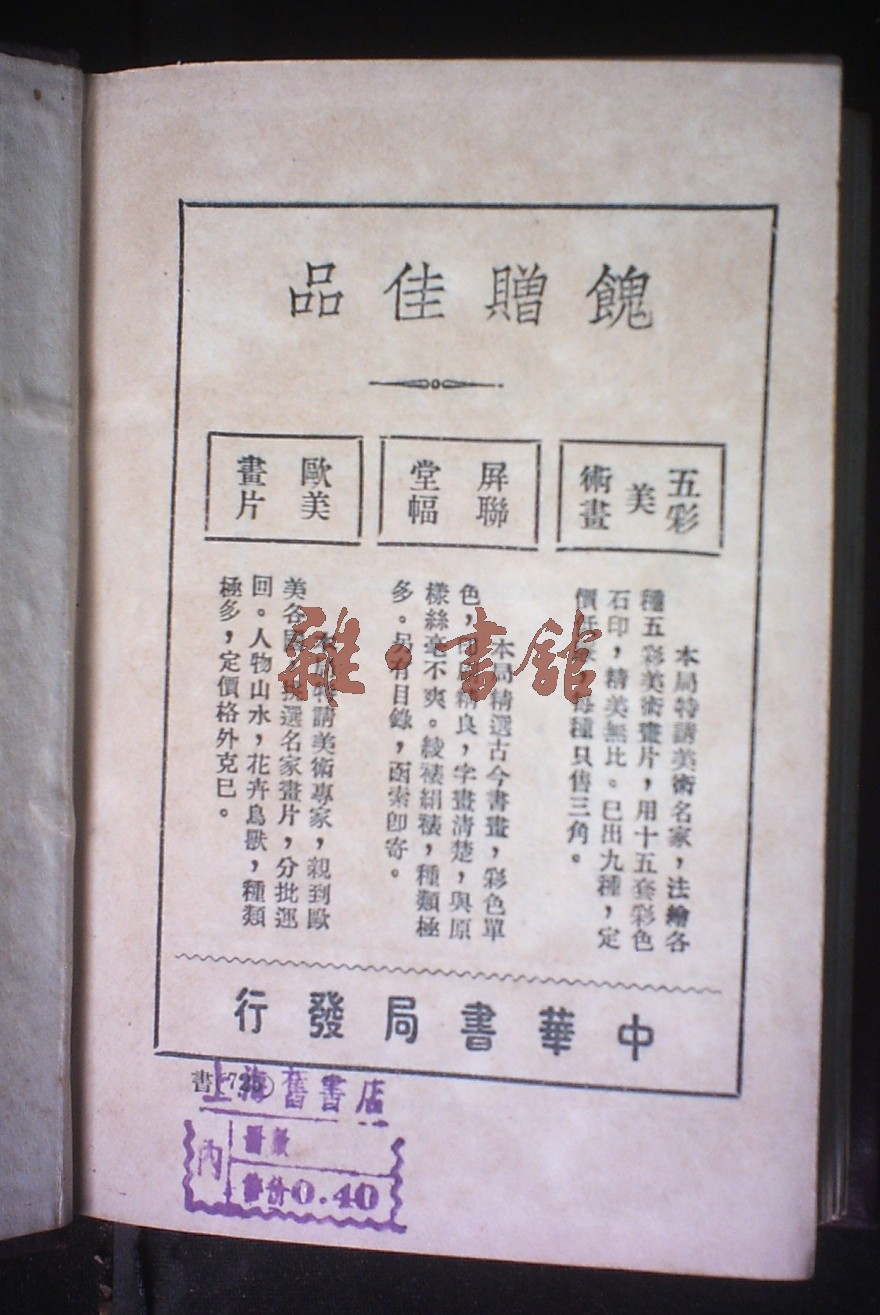 餽贈佳品
五彩
美
術畫
本局特請美術名家，法繪各
種五彩美術畫片，用十五套彩色
石印，精美無比。已出九種，定
價 每種只售三角。
屏聯
堂幅
本局精選古今書畫，彩色單
色， 精良，字畫清楚，與原
樣絲毫不爽。綾裱絹裱，種類極
多。另有目錄，函索卽寄。
歐美
畫片
特請美術專家，親到歐
美各 選名家畫片，分批運
回。人物山水，花卉鳥獸，種類
極多，定價格外克已。
中華書局發行
書 725
上海舊書店
內
0.40
雅·書館